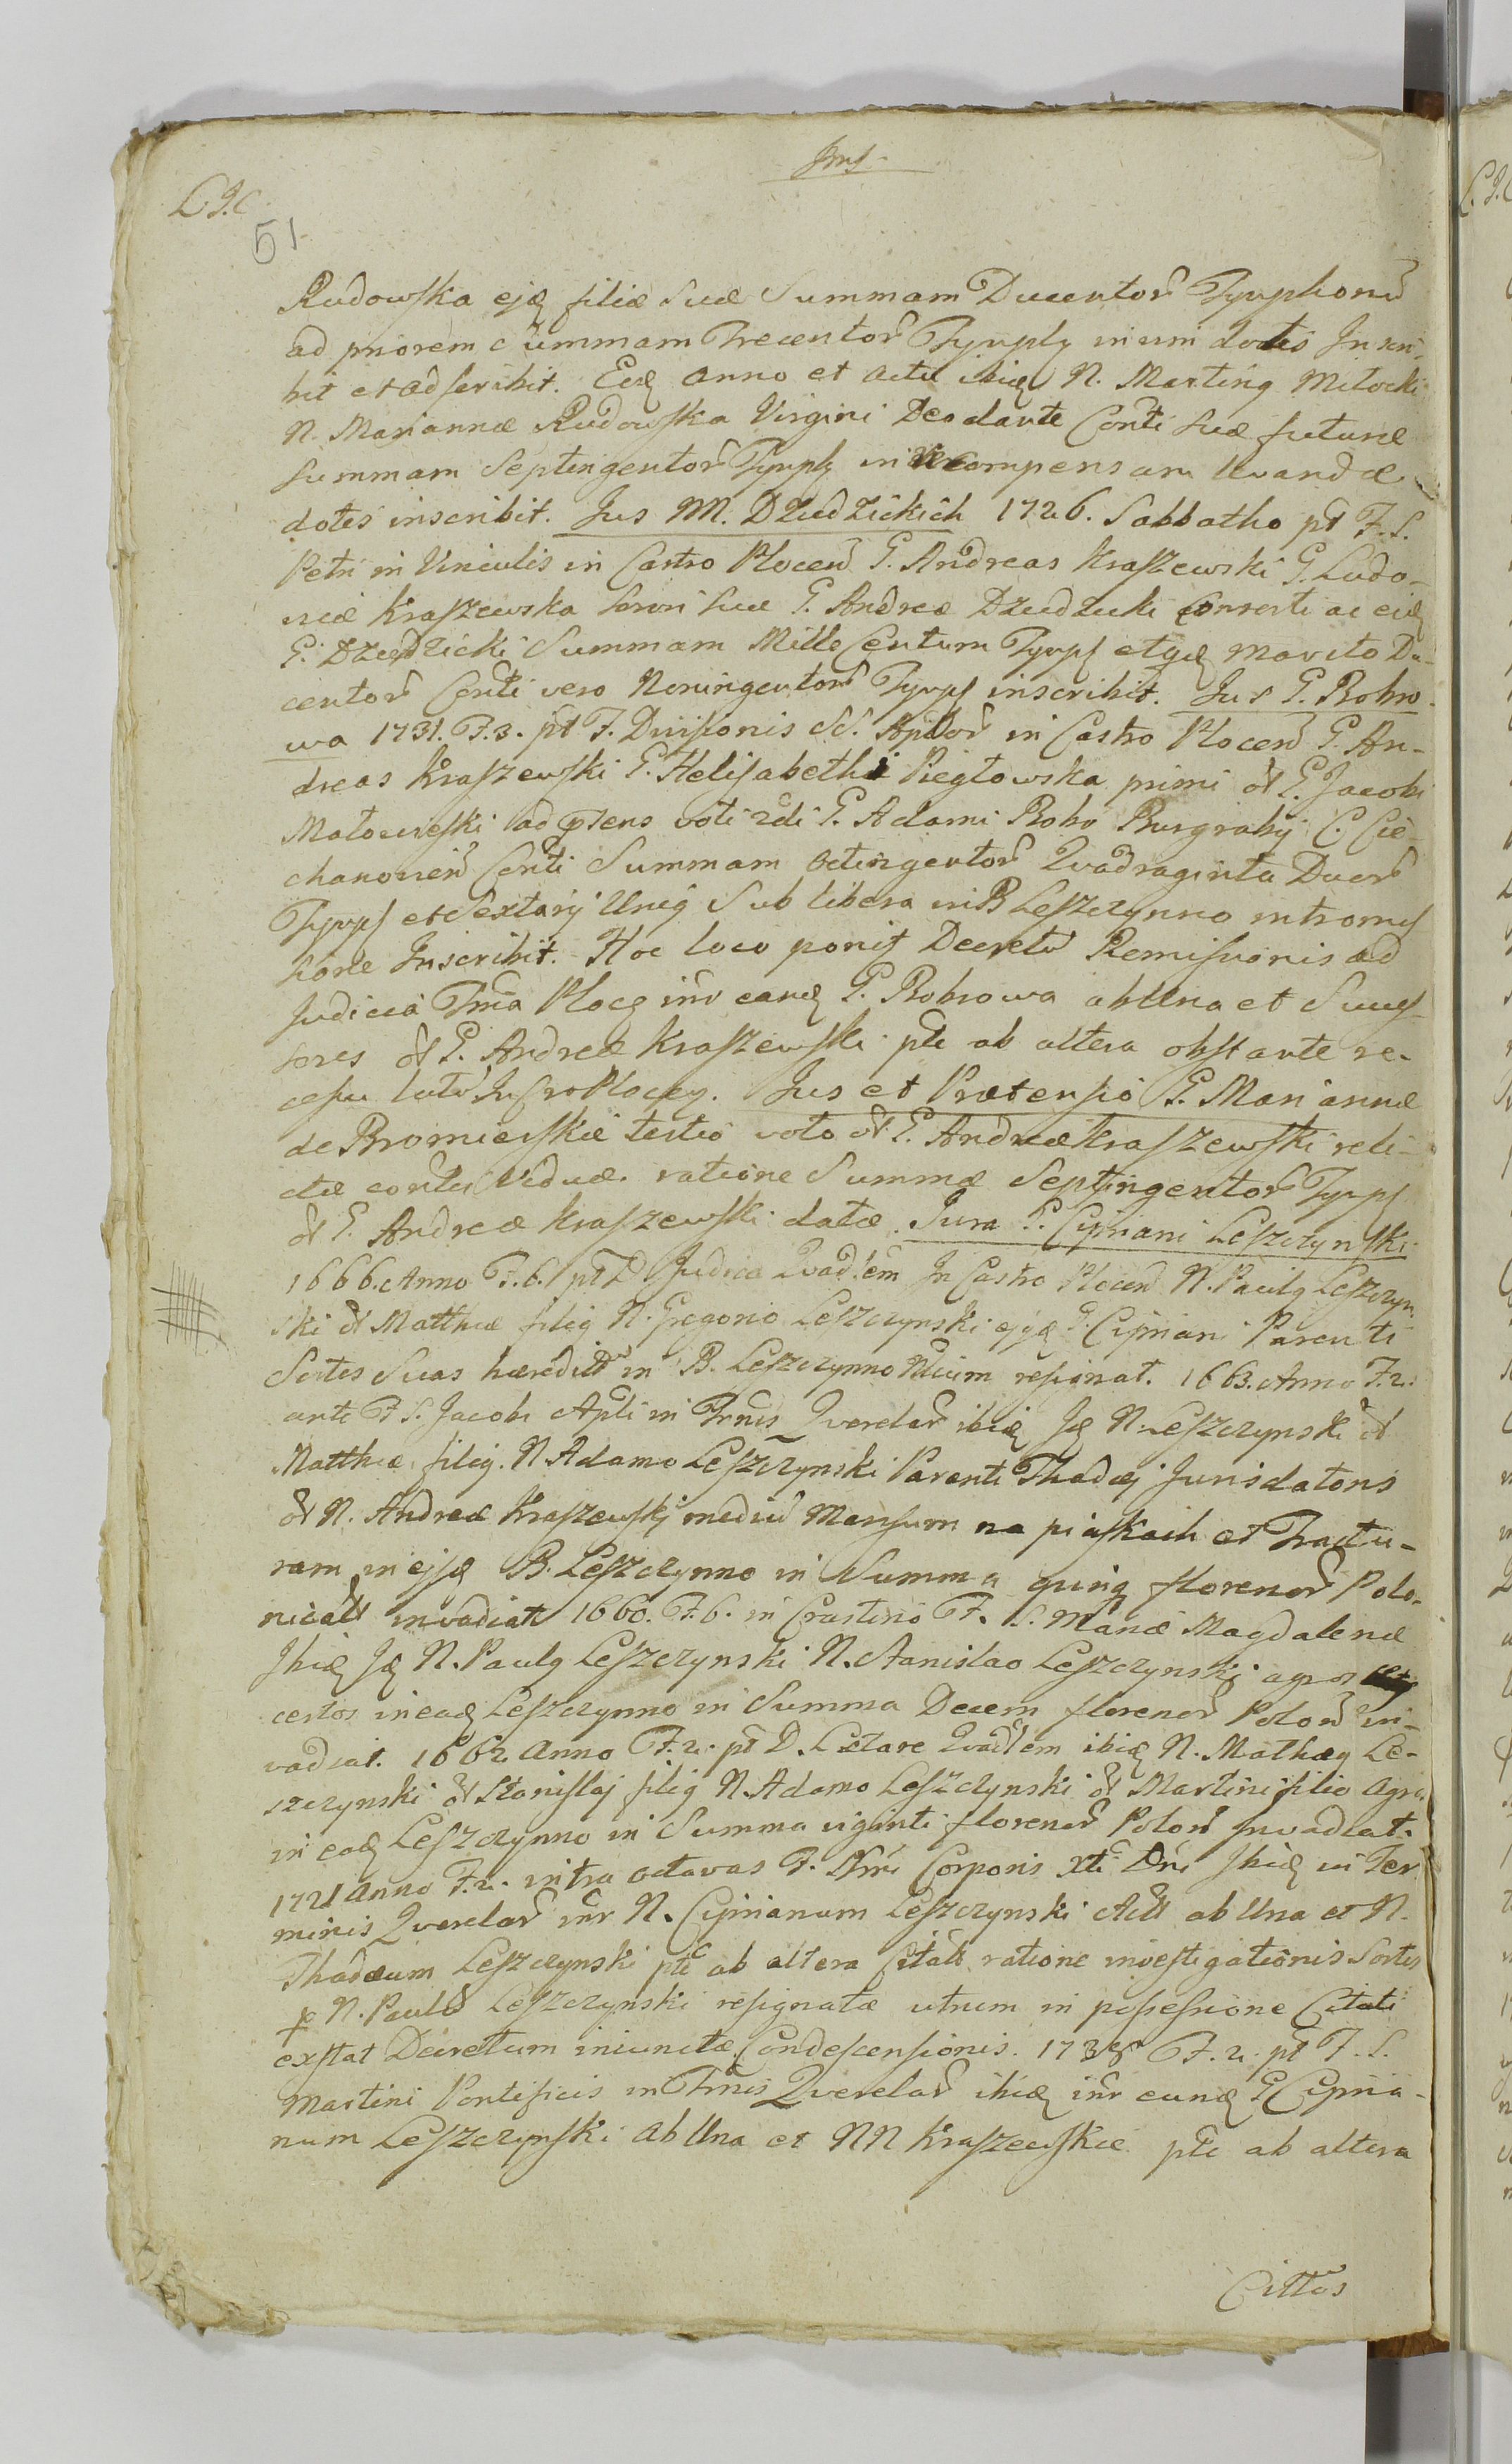 Jnś
L J.C.
51
Rudowska ejq filiæ Suæ Summam Ducentor Tynphonu
ad priorem Summam Trecentor Tynph in vim dotis Inscri-
bit et adscribit. Eod anno et actu ibid N. Martinq Miłocki
N. Mariannæ Rudowska Virgini Deo dante Conti suæ futuræ
Summam Septingentor Tynph in recompensam
dotis inscribit. Jus M. Dzudzickich 1726. Sabbatho pt F. S.
Petri in Vinculis in Castro Plocen G. Andreas Kraszewski G. Ludo-
vicæ Kraszewska Sorori suæ G. Andreæ Dzudzicki Consorti ac eid
G. Dzudzicki Summam Mille Centum Tynph etqe Marito Du-
centor Conti vero Noningentor Tynph inscribit. Jus G. Bobro-
wa 1731. F. 3. pt F. Divisionis SS. Aplor in Castro Plocen G. An-
dreas Kraszewski G. Helisabethæ Piegłowska primi ol G. Jacobi
Małowieski ad pns voti 2di G. Adami Bobr Burgrabij C. Cie-
chanovien Conti Summam Octingentor Qvadraginta Duor
Tynph et Sextarij Uniq Sub libera in B Leszczynno intromis
sione Inscribit. Hoc loco ponit Decretu Remissionis ad
Judicia Trna Plocq inr eand G. Bobrowa ab Una et Succes-
sores ol G. Andreæ Kraszewski pte ab altera obstante re-
cessu latu In Cro Plocen. Jus et Prætensio G. Mariannæ
de Bromierskie tertio voto ol G. Andreæ Kraszewski reli-
ctæ contis Viduæ ratione Summæ Septingentor Tynph
ol G. Andreæ Kraszewski datæ. Jura G. Cipriani Leszczynski
1666. Anno F. 6. pt D Judica Qvadlem In Castro Plocen N. Paulq Leszczyn
ski ol Matthiæ filiq N. Gregorio Leszczynski ejqe G. Cipriani Parenti
Sortes Suas hæredit in B. Leszczynno resignat. 1663. Anno F. 2.
ante F. S. Jacobi Apli in Trnis Qverelar ibid Jd N. Leszczynski ol
Matthiæ filiq. N. Adamo Leszczynski Parenti Thadæj Jurisdatoris
ol N. Andreæ Kraszewskj mediu Mansum na piaskach et Prastu-
ram in ejsd B. Leszczynno in Summa quinq florenor Polo-
nicalt invadiat 1660. F. 6. in Crastino F. S. Mariæ Magdalenæ
Ibid Jd N. Paulq Leszczynski N. Stanislao Leszczynski agros
certos in ead Leszczynno in Summa Decem florenor Polon in-
vadiat. 1662 Anno F. 2. pt D. Lætare Qvadlem ibid N. Mathæq Le-
szczynski ol Stanislaj filiq N. Adamo Leszczynski ol Martini filio agro
in ead Leszczynno in Summa viginti florenor Polon Invadiat.
1721 Anno F. 2. intra octavas F. Smi Corporis Xti Dni Ibid in Ter
minis Qverelar inr N. Ciprianum Leszczynski Actt ab Una et N.
Thadæum Leszczynski pte ab altera Citatt ratione investigationis Sortis
p N. Paulu Leszczynski resignatæ utrum in possessione Citati
exstat Decretum iniunctæ Condescensionis. 1735 F. 2. pt F. S.
Martini Pontificis in Trnis Qverelar ibid inr eund G Cipria-
num Leszczynski ab Una et NN Kraszewskie pte ab altera
Cittos